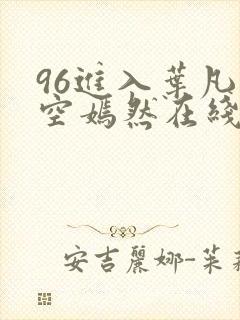 96進入葉凡
空嫣然在綫
安吉麗娜-茱